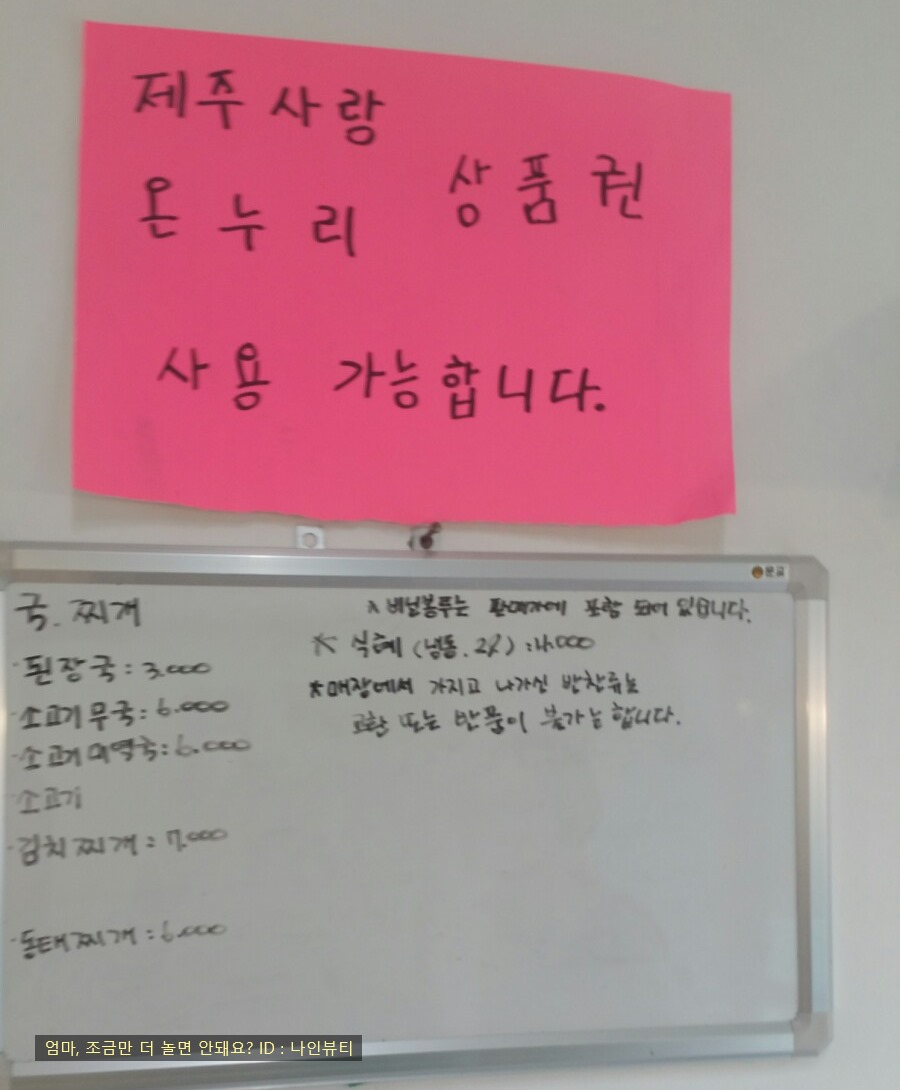 제주사랑
온누리 상품권
사용 가능합니다.
문교
국.찌개
·된장국 : 3.000
·소고기 무국 : 6.000
·소고기 미역국 : 6.000
·소고기
·김치찌개 : 7.000
·동태찌개 : 6.000
* 비닐봉투는 판매가에 포함 되어 있습니다.
* 식혜 (냉동. 2ℓ) : 4.000
* 매장에서 가지고 나가신 반찬류는
교환 또는 반품이 불가능 합니다.
엄마, 조금만 더 놀면 안돼요? ID : 나인뷰티